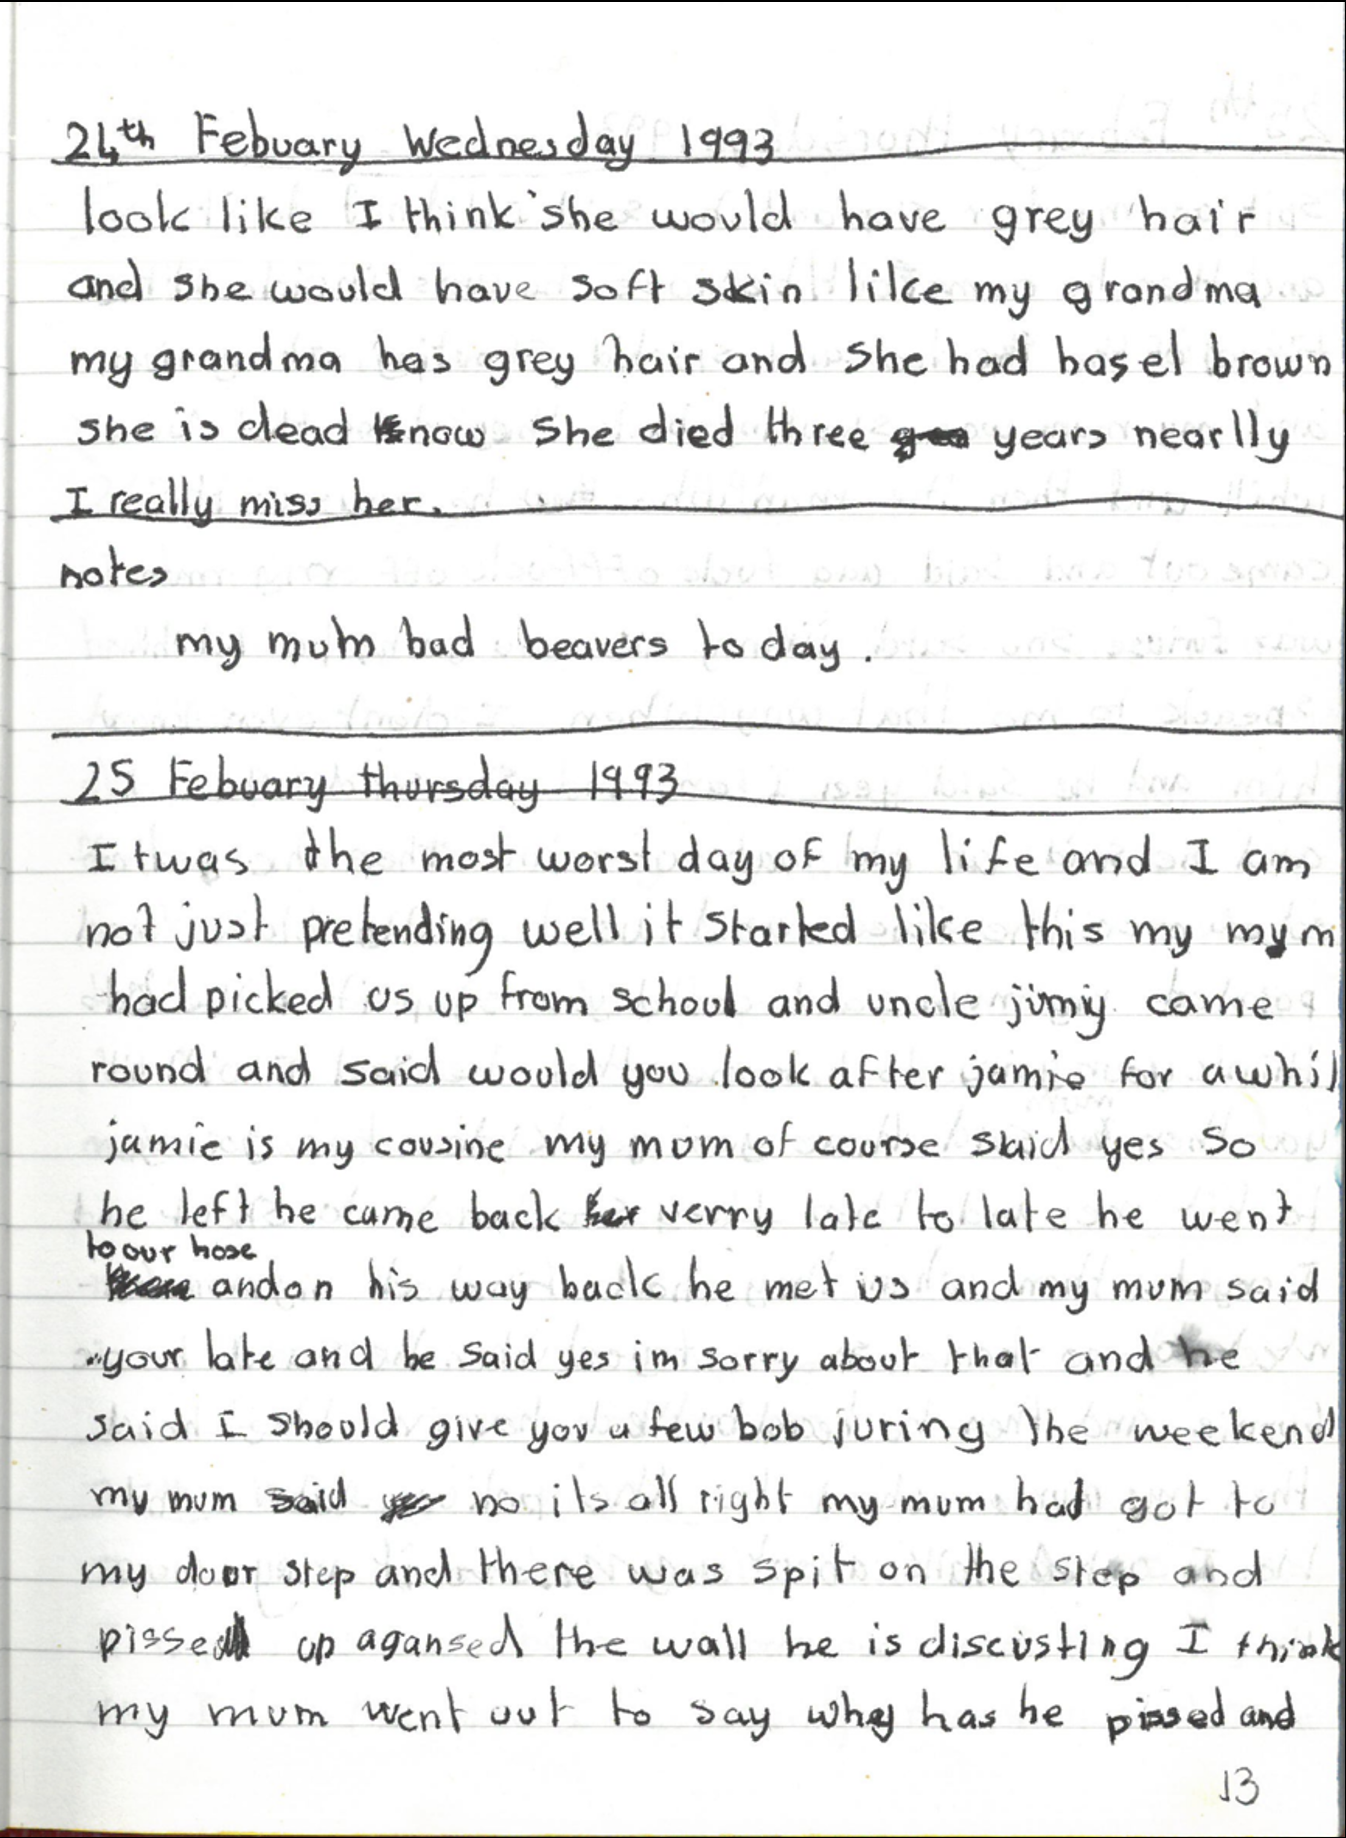 24th Febuary Wednesday 1993
look like I think she would have grey hair
and she would have soft skin like my grandma
my grandma has grey hair and she had hasel brown
she is dead know she died three years nearlly
I really miss her.
notes
my mum had beavers to day.
25 Febuary thursday 1993
Itwas the most worst day of my life and I am
not just pretending well it started like this my mym
had picked us up from school and uncle jimiy came
round and said would you look after jamie for awhil
jamie is my cousine my mum of course skaid yes so
he left he came back verry late to late he went
to our hose
and on his way back he met us and my mum said
your late and he said yes im sorry about that and he
said I should give you a few bob juring the weekend
my mum said no its all right my mum had got to
my door step and there was spit on the step and
pissed up agansed the wall he is discusting I think
my mum went out to say why has he pissed and
13